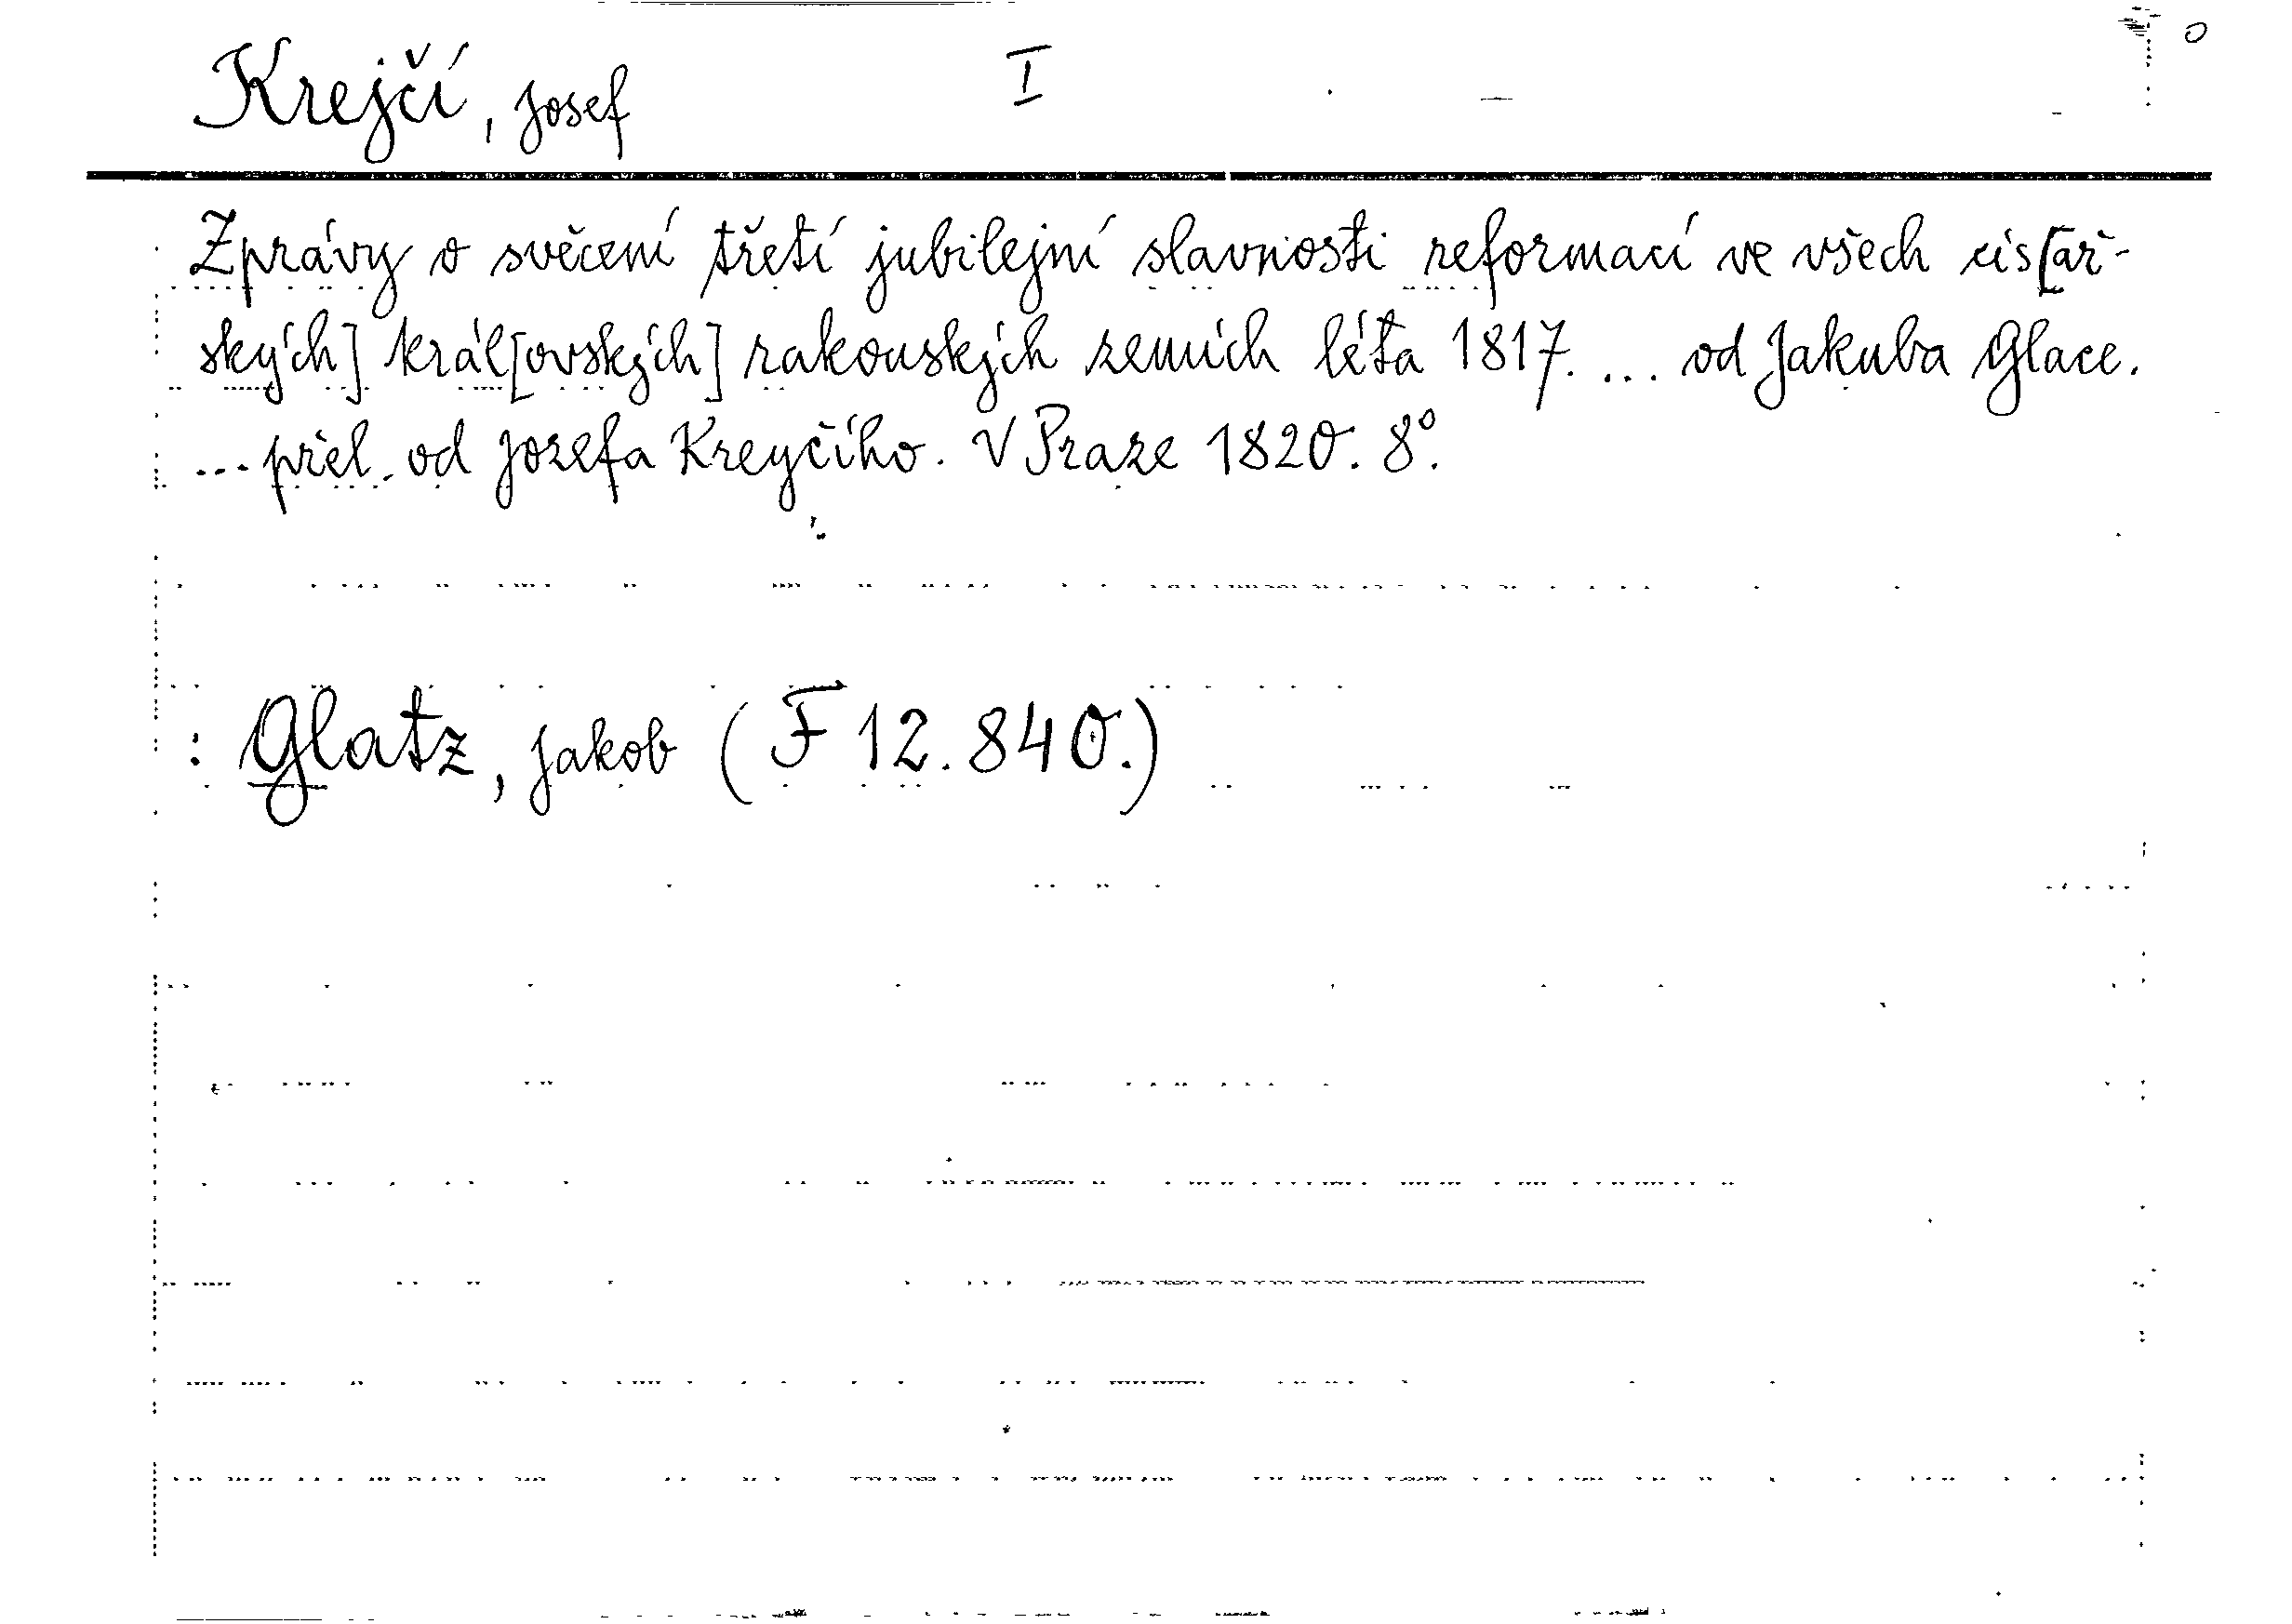 Krejčí, Josef I
Zprávy o svěcení třetí jubilejní slavnosti reformací ve všech cís[ař-
ských] král[ovských] rakouských zemích léta 1817. ... od Jakuba Glace.
... přel. od Jozefa Kreyčího. V Praze 1820. 8°.
: Glatz, Jakob (F 12.840.)